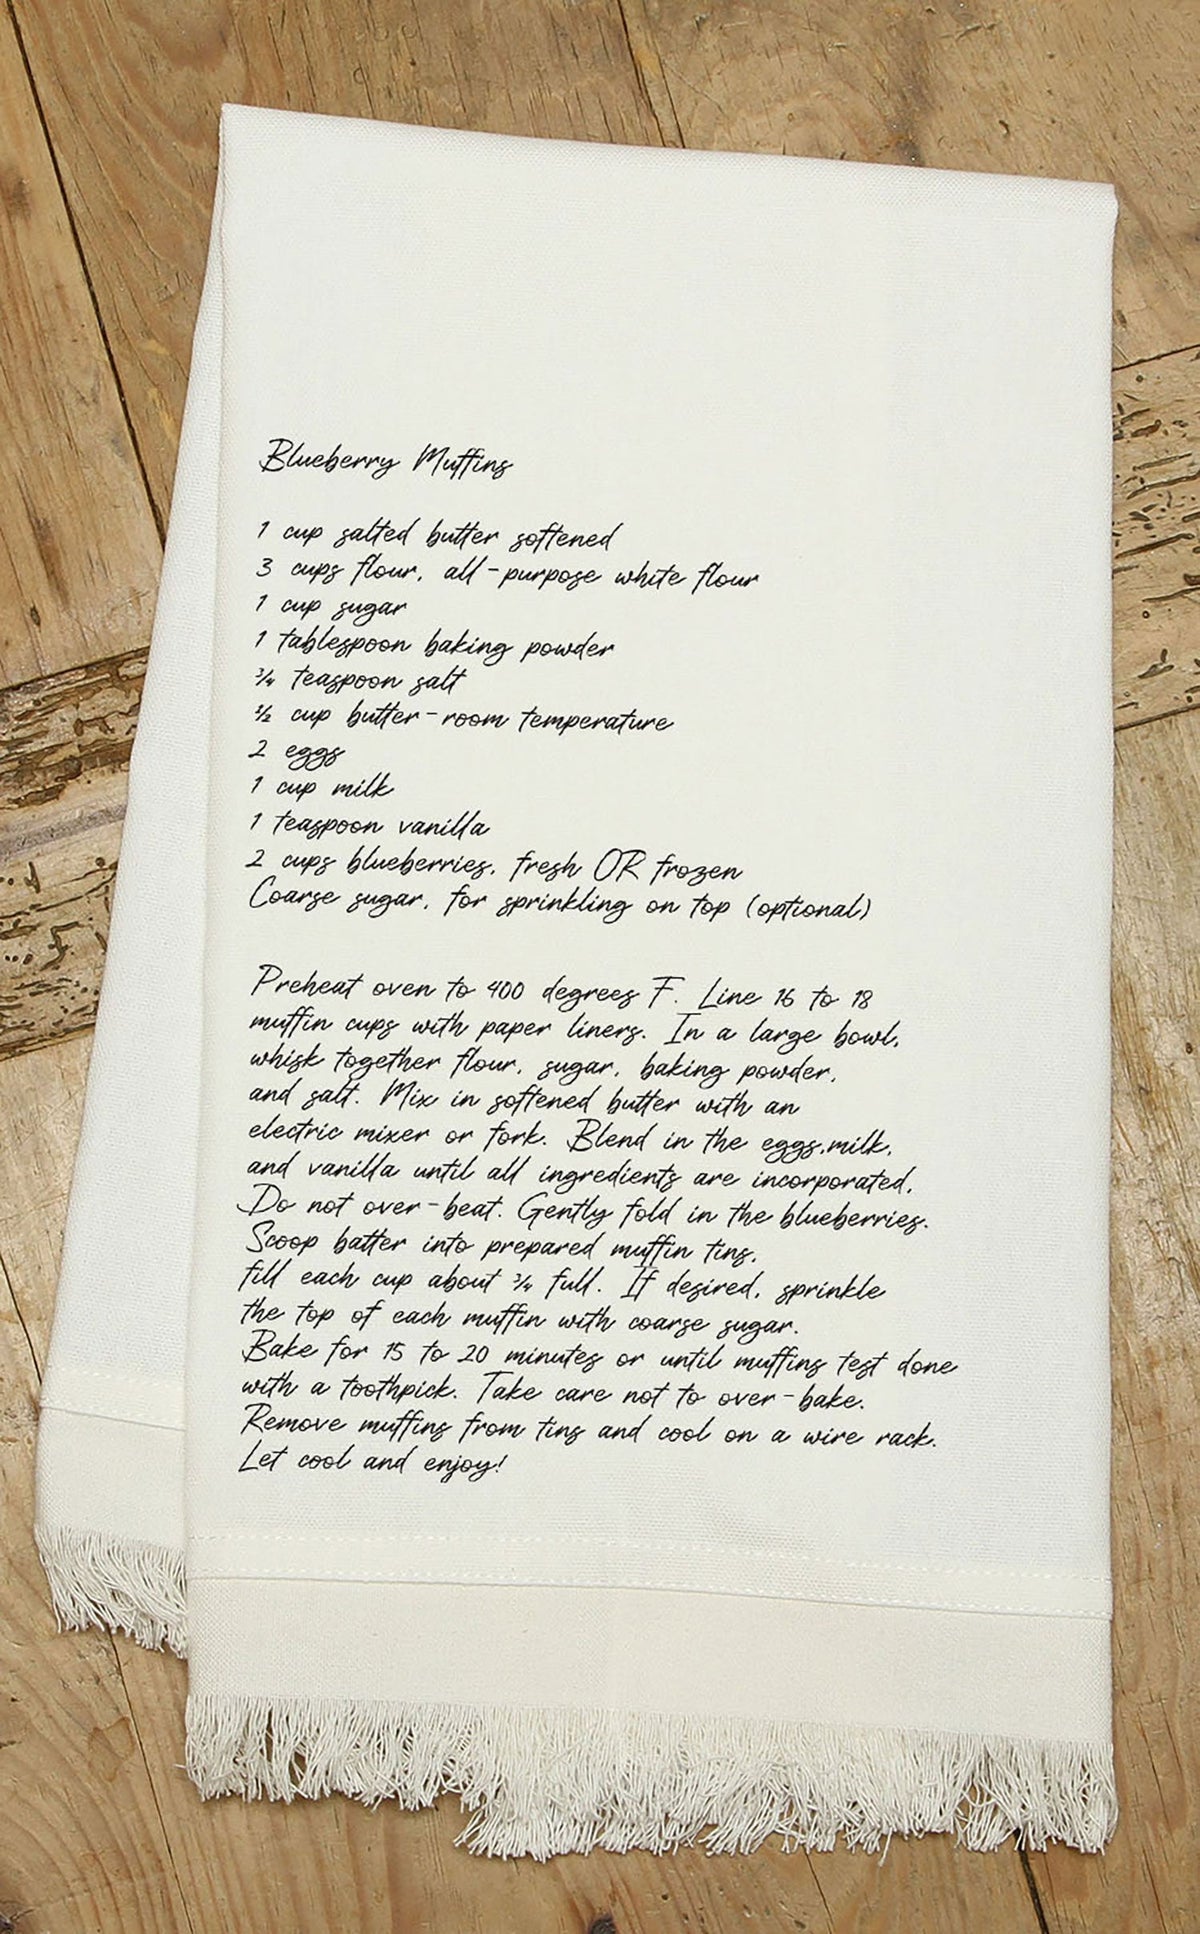 Blueberry Muffins
1 cup salted butter softened
3 cups flour, all-purpose white flour
1 cup sugar
1 tablespoon baking powder
3/4 teaspoon salt
1/2 cup butter-room temperature
2 eggs
1 cup milk
1 teaspoon vanilla
2 cups blueberries, fresh OR frozen
Coarse sugar, for sprinkling on top (optional)
Preheat oven to 400 degrees F. Line 16 to 18
muffin cups with paper liners. In a large bowl,
whisk together flour, sugar, baking powder,
and salt. Mix in softened butter with an
electric mixer or fork. Blend in the eggs,milk,
and vanilla until all ingredients are incorporated,
Do not over-beat. Gently fold in the blueberries.
Scoop batter into prepared muffin tins,
fill each cup about 3/4 full. If desired, sprinkle
the top of each muffin with coarse sugar.
Bake for 15 to 20 minutes or until muffins test done
with a toothpick. Take care not to over-bake.
Remove muffins from tins and cool on a wire rack.
Let cool and enjoy!